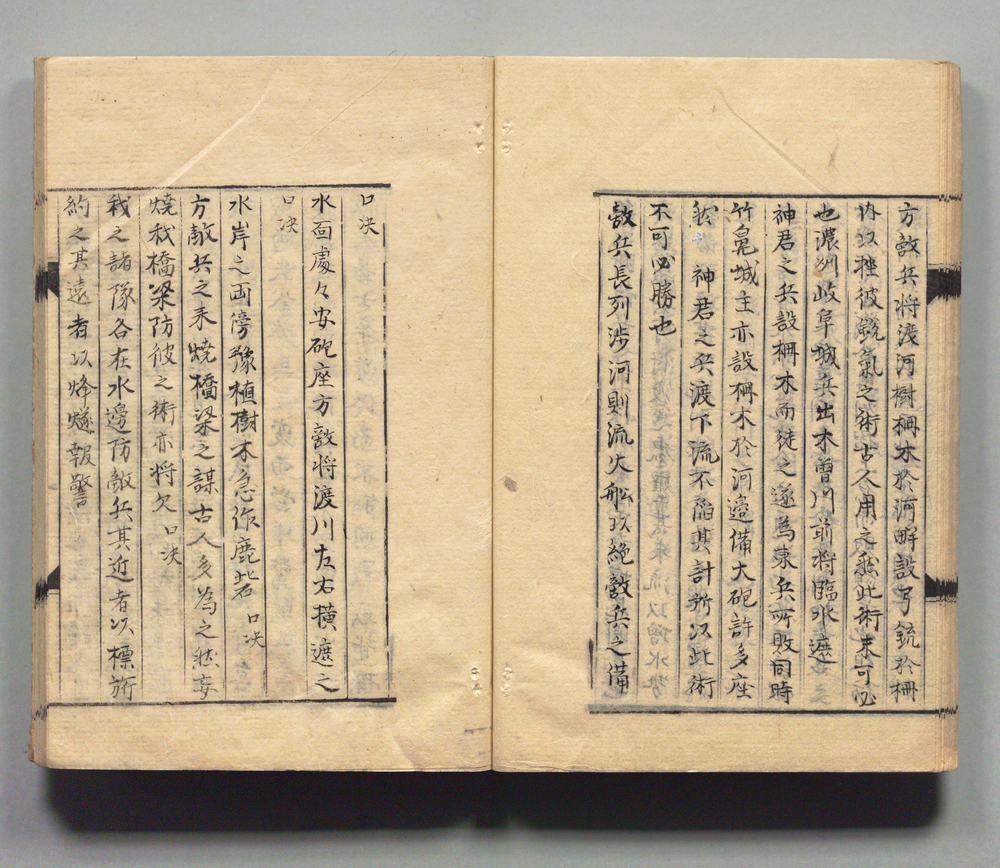 方敵兵将淺河樹柵木於河畔設弓銃於柵
内以挫彼鋭氣之術古人用之然此術未可必
也濃州岐阜城兵出木曽川前将臨水遮
神君之兵設柵木而徒之遂為東兵所敗同時
竹鼻城主亦設柵木於河邉備大砲許多座
然 神君之兵渡下流不陥其計所以此術
不可必勝也
敵兵長列渉河則流火舩以絶敵兵之備
口决
水面處々安砲座方敵将渡川左右横遮之
口决
水岸之両傍豫植樹木急作鹿砦 口决
方敵兵之来燒橋梁之謀古人多為之然妄
燒我橋梁防彼之術亦将欠 口决
我之諸隊各在水邉防敵兵其近者以標旂
約之其遠者以烽燧報警